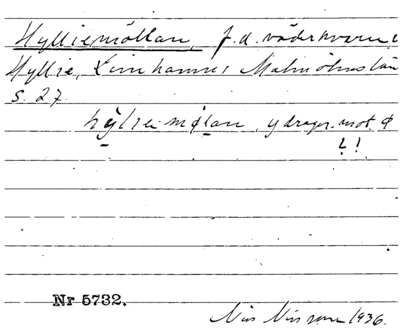 Hylliemöllan, f.d. väderkvarn i
Hyllie, Limhamns, Malmöhus län
S. 27.
hýlιemø̨lan, y drager mot ø
?!
Nr 5732.
Nils Nilsson 1936.